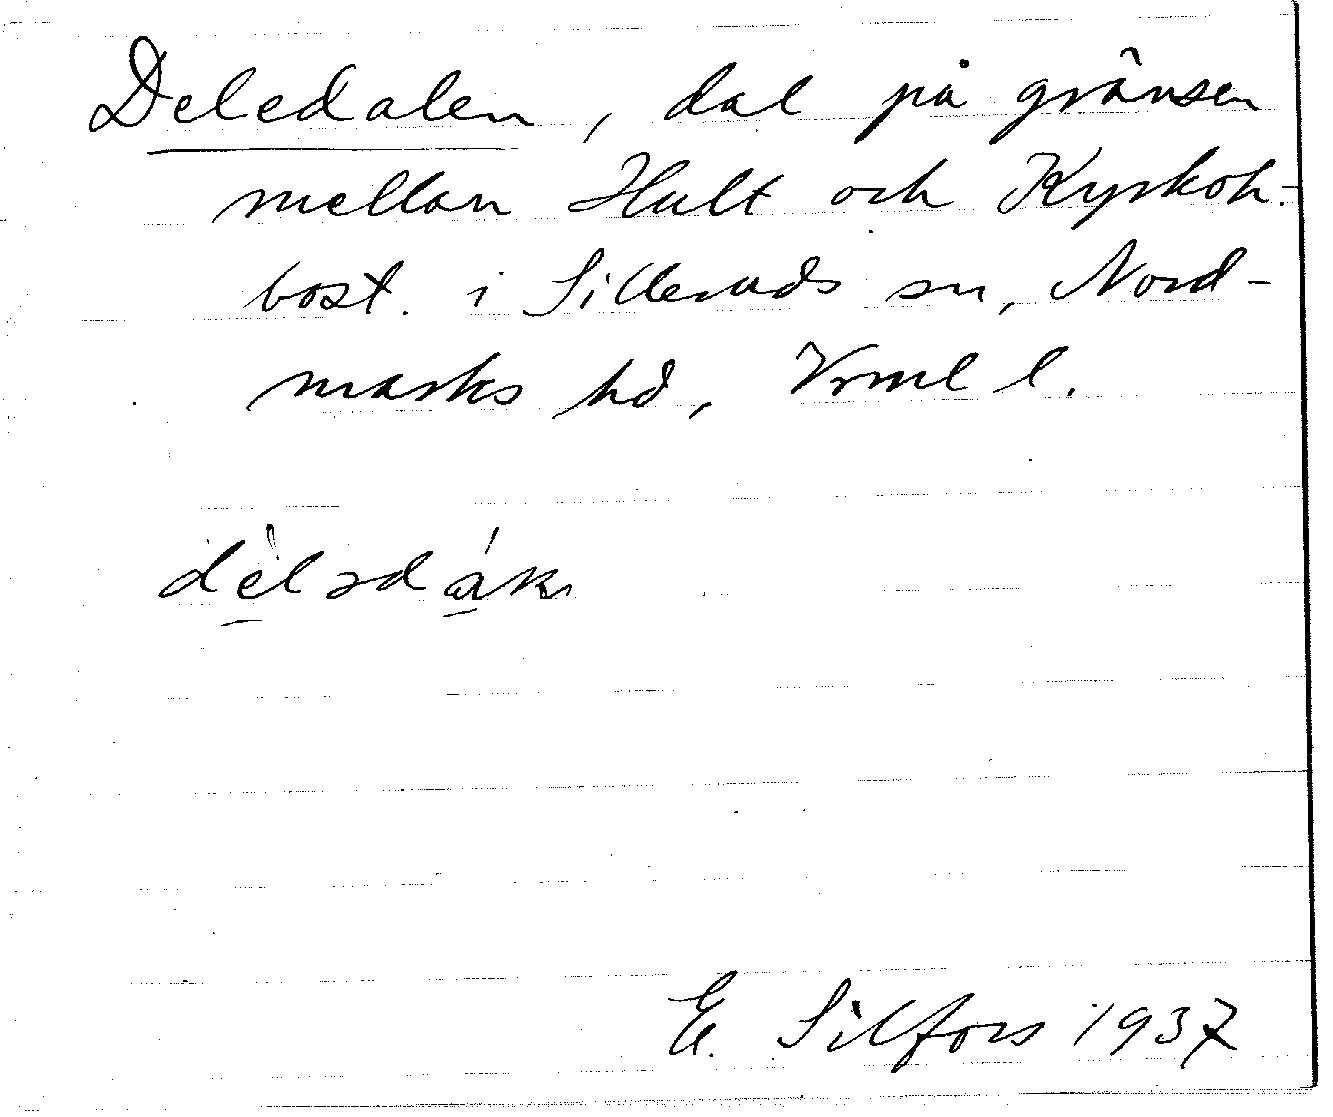 Deledalen, dal på gränsen
mellan Hult och Kyrkoh.-
bost. i Silleruds sn, Nord-
marks hd, Vrml l.
E. Silfors 1937